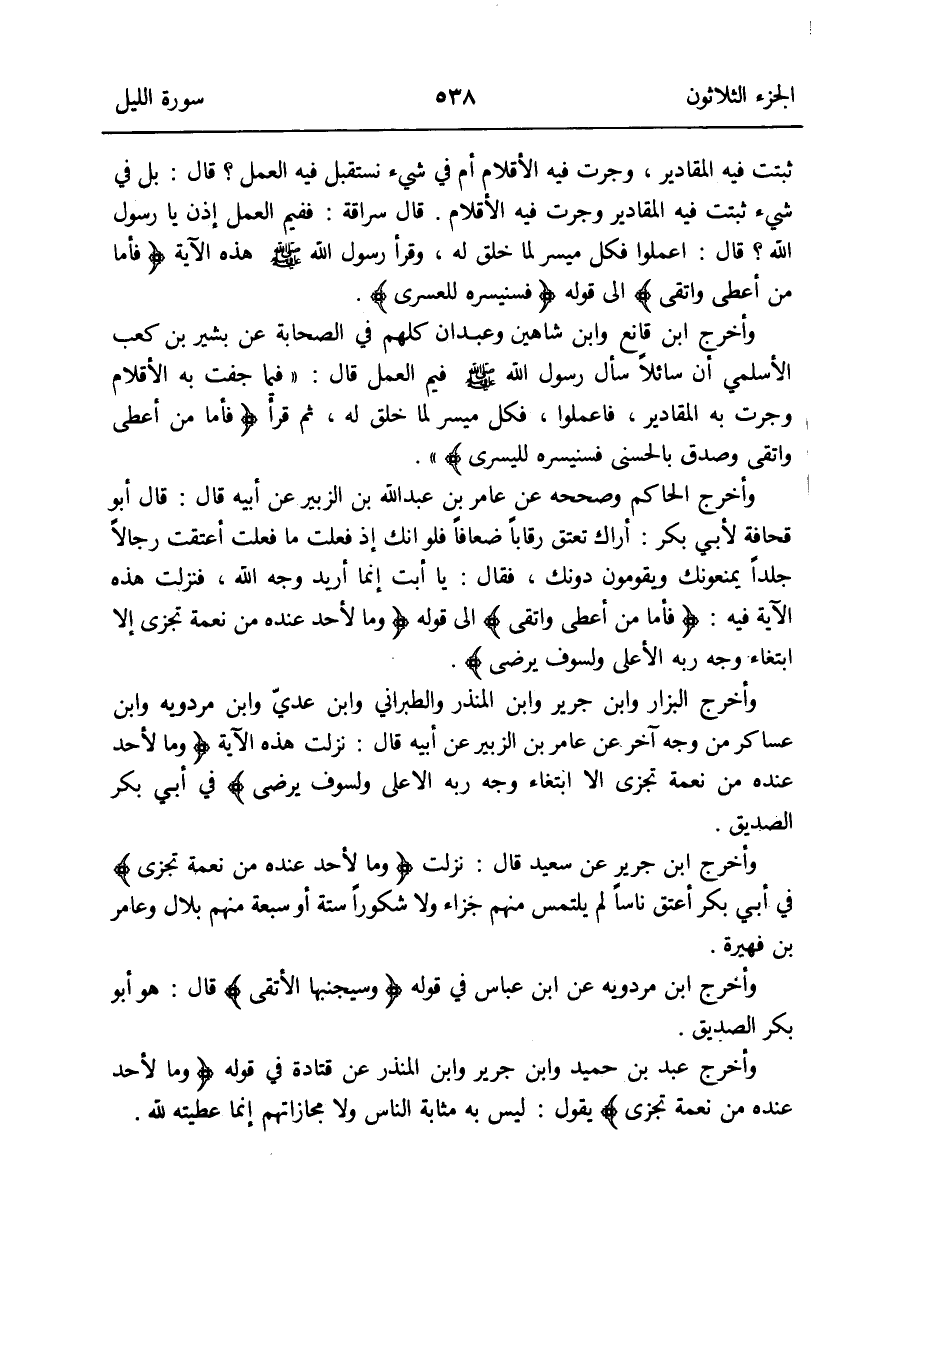 الجزء الثلاثون ٥٣٨ سورة الليل
ثبتت فيه المقادير ، وجرت فيه الأقلام أم في شيء نستقبل فيه العمل ؟ قال : بل في
شيء ثبتت فيه المقادير وجرت فيه الأقلام . قال سراقة : ففيم العمل إذن يا رسول
الله ؟ قال : اعملوا فكل ميسر لما خلق له ، وقرأ رسول الله ﷺ هذه الآية ﴿ فأما
من أعطى واتقى ﴾ الى قوله ﴿ فسنيسره للعسرى ﴾ .
وأخرج ابن قانع وابن شاهين وعبدان كلهم في الصحابة عن بشير بن كعب
الأسلمي أن سائلاً سأل رسول الله ﷺ فيم العمل قال : « فيما جفت به الأقلام
وجرت به المقادير ، فاعملوا ، فكل ميسر لما خلق له ، ثم قرأ ﴿ فأما من أعطى
واتقى وصدق بالحسنى فسنيسره لليسرى ﴾ » .
وأخرج الحاكم وصححه عن عامر بن عبدالله بن الزبير عن أبيه قال : قال أبو
قحافة لأبي بكر : أراك تعتق رقاباً ضعافاً فلو انك إذ فعلت ما فعلت أعتقت رجالاً
جلداً يمنعونك ويقومون دونك ، فقال : يا أبت إنما أريد وجه الله ، فنزلت هذه
الآية فيه : ﴿ فأما من أعطى واتقى ﴾ الى قوله ﴿ وما لأحد عنده من نعمة تجزى إلا
ابتغاء وجه ربه الأعلى ولسوف يرضى ﴾ .
وأخرج البزار وابن جرير وابن المنذر والطبراني وابن عديّ وابن مردويه وابن
عساكر من وجه آخر عن عامر بن الزبير عن أبيه قال : نزلت هذه الآية ﴿ وما لأحد
عنده من نعمة تجزى الا ابتغاء وجه ربه الاعلى ولسوف يرضى ﴾ في أبي بكر
الصديق .
وأخرج ابن جرير عن سعيد قال : نزلت ﴿ وما لأحد عنده من نعمة تجزى ﴾
في أبي بكر أعتق ناساً لم يلتمس منهم جزاء ولا شكوراً ستة أو سبعة منهم بلال وعامر
بن فهيرة .
وأخرج ابن مردويه عن ابن عباس في قوله ﴿ وسيجنبها الأتقى ﴾ قال : هو أبو
بكر الصديق .
وأخرج عبد بن حميد وابن جرير وابن المنذر عن قتادة في قوله ﴿ وما لأحد
عنده من نعمة تجزى ﴾ يقول : ليس به مثابة الناس ولا مجازاتهم إنما عطيته لله .